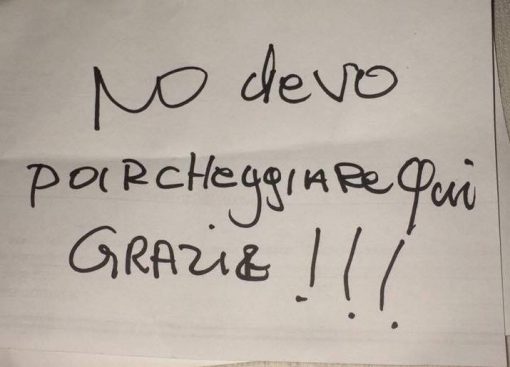 NO devo
POIRCHeggIARe qui
GRAZIE!!!